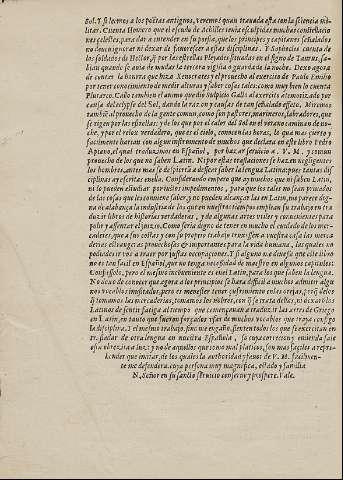 Sol. Y si leemos a los poëtas antigos, veremos quan trauada esta con la sciencia mi-
litar. Cuenta Homero que el escudo de Achilles tenia esculpidas muchas constellacio-
nes celestes, para dar a entender en su poesia, que los principes y capitanes señalados
no deuen ignorar ni dexar de fauorescer a estas disciplinas. Y Sophocles cuenta de
los soldados de Hector, q̃ por las estrellas Pleyades situadas en el signo de Taurus, sa-
bian quando se auia de mudar la tercera vigilia o guarda de la noche. Dexo agora
de contar la honrra que hizo Xenocrates y el prouecho al exercito de Paulo Emilio
por tener conoscimiento de medir alturas y saber cosas tales, como muy bien lo cuenta
Plutarco. Callo tambien el animo que dio Sulpicio Gallo al exercito atemorizado por
causa del eclypse del Sol, dando la razon y causas de tan señalado effeto. Miremos
tambiẽ al prouecho de la gente comun, como son pastores, marineros, labradores, que
se rigen por las estrellas: y de los que por el calor del Sol en el verano caminan de no-
che, y por el relox verdadero, que es el cielo, conocen las horas, lo qual mas cierto y
facilmente harian con algun instrumento de muchos que declara en este libro Pedro
Apiano, el qual traduzimos en Español, por hazer seruicio a V. M. y comun
prouecho de los que no saben Latin. Ni por estas traslaciones se hazen negligentes
los hombres, antes mas se despierta a dessear saber la lengua Latina: pues tantas dis-
ciplinas ay escritas en ella. Considerando tambien que ay muchos que ni saben Latin,
ni le pueden estudiar por justos impedimentos, para que los tales no sean priuados
de las cosas que les conuiene saber, y no pueden alcançar las en Latin, me parece dig-
na de alabança la industria de los que en nuestro tiempo emplean su trabajo en tra
duzir libros de historias verdaderas, y de algunas artes vtiles y conuenientes para
polir y assentar el juizio. Como seria digno de tener en mucho el cuidado de los mer-
caderes, que a sus costas y con su propio trabajo truxessen a vuestra casa las merca-
derias estrangeras prouechosas & importantes para la vida humana, las quales no
podiades ir vos a traer por justas occupaciones. Y si alguno me dixesse que este libro
no es tan facil en Español, que no tenga necessidad de maestro en algunos capitulos:
Confiessolo, pero el mesmo inconueniente es en el Latin, para los que saben la lengua.
No dexo de conocer que agora a los principios se hara difficil a muchos admitir algu-
nos vocablos inusitados, pero es menester tener sufrimiento en las orejas, porq̃ desde
q̃ tomamos las mercaderias, tomamos los nõbres, con q̃ se trata dellas, ni dexarõ los
Latinos de sentir fatiga al tiempo que començaron a traduzir las artes de Griego
en Latin, en tanto que fueron forçados vsar de muchos vocablos que traya consigo
la disciplina. Y el mesmo trabajo, sino me engaño, sienten todos los que se exercitan en
trasladar de otra lengua en nuestra Española, cuya correction y emienda sale
a luz: y no de aquellos que como mal platicos, son mas faciles a repre-
hender que imitar, de los quales la authoridad y fauor de V. M. facilmen-
te me defendera. cuya persona muy magnifica, estado y familia
N. Señor en su sancto seruicio conserue y prospere. Vale.